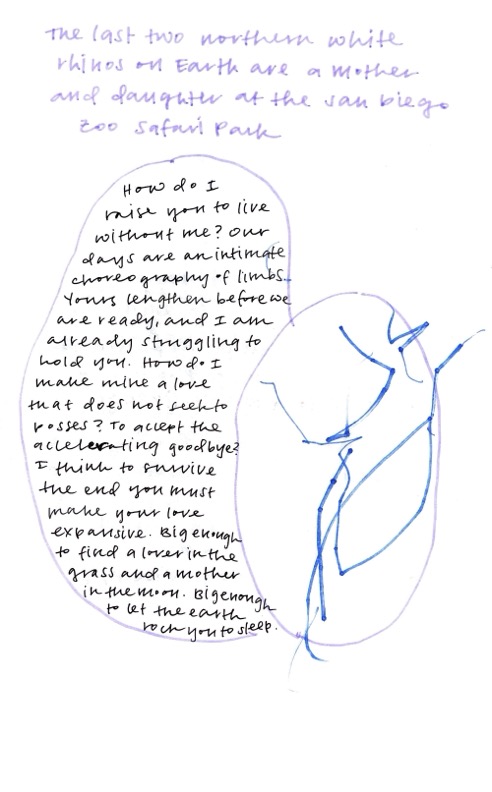 The last two northern white
rhinos on Earth are a mother
and daughter at the San Diego
Zoo Safari Park
How do I
raise you to live
without me? Our
days are an intimate
choreography of limbs.
Yours lengthen before we
are ready, and I am
already struggling to
hold you. How do I
make mine a love
that does not seek to
possess? To accept the
accelerating goodbye?
I think to survive
the end you must
make your love
expansive. Big enough
to find a lover in the
grass and a mother
in the moon. Big enough
to let the earth
rock you to sleep.